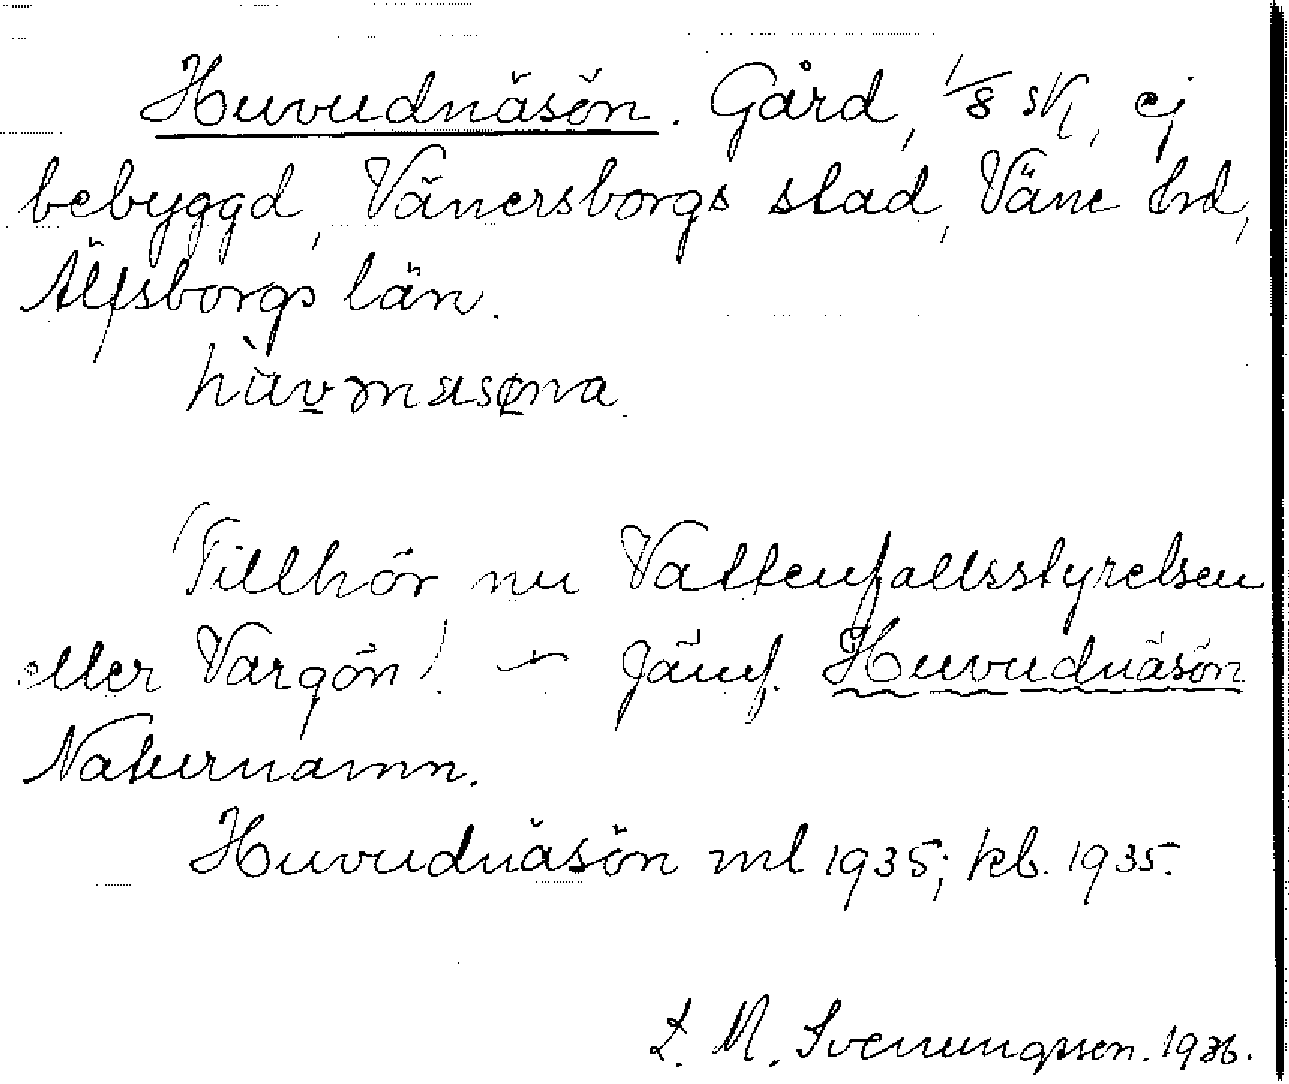 Huvudnäsön. Gård, 1/8 sk, ej
bebyggd, Vänersborgs stad, Väne hd,
Älfsborgs län.
(Tillhör nu Vattenfallsstyrelsen
eller Vargön). – Jämf. Huvudnäsön
Naturnamn.
Huvudnäsön ml 1935; kb. 1935.
L. M. Svenungsson. 1936.